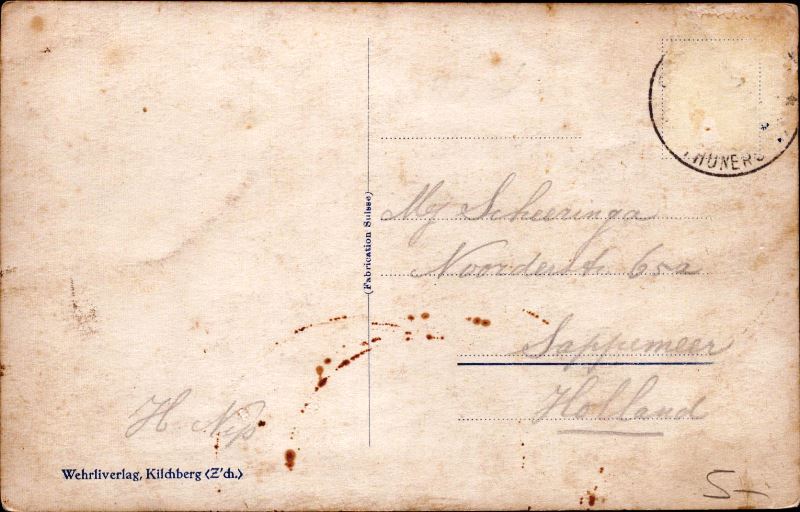 HUNERS
(Fabrication Suisse)
Mej Scheeringa
Noorderstr. 65a
Sappemeer
Holland
H. Nip
Wehrliverlag, Kilchberg (Z'ch.)
5-